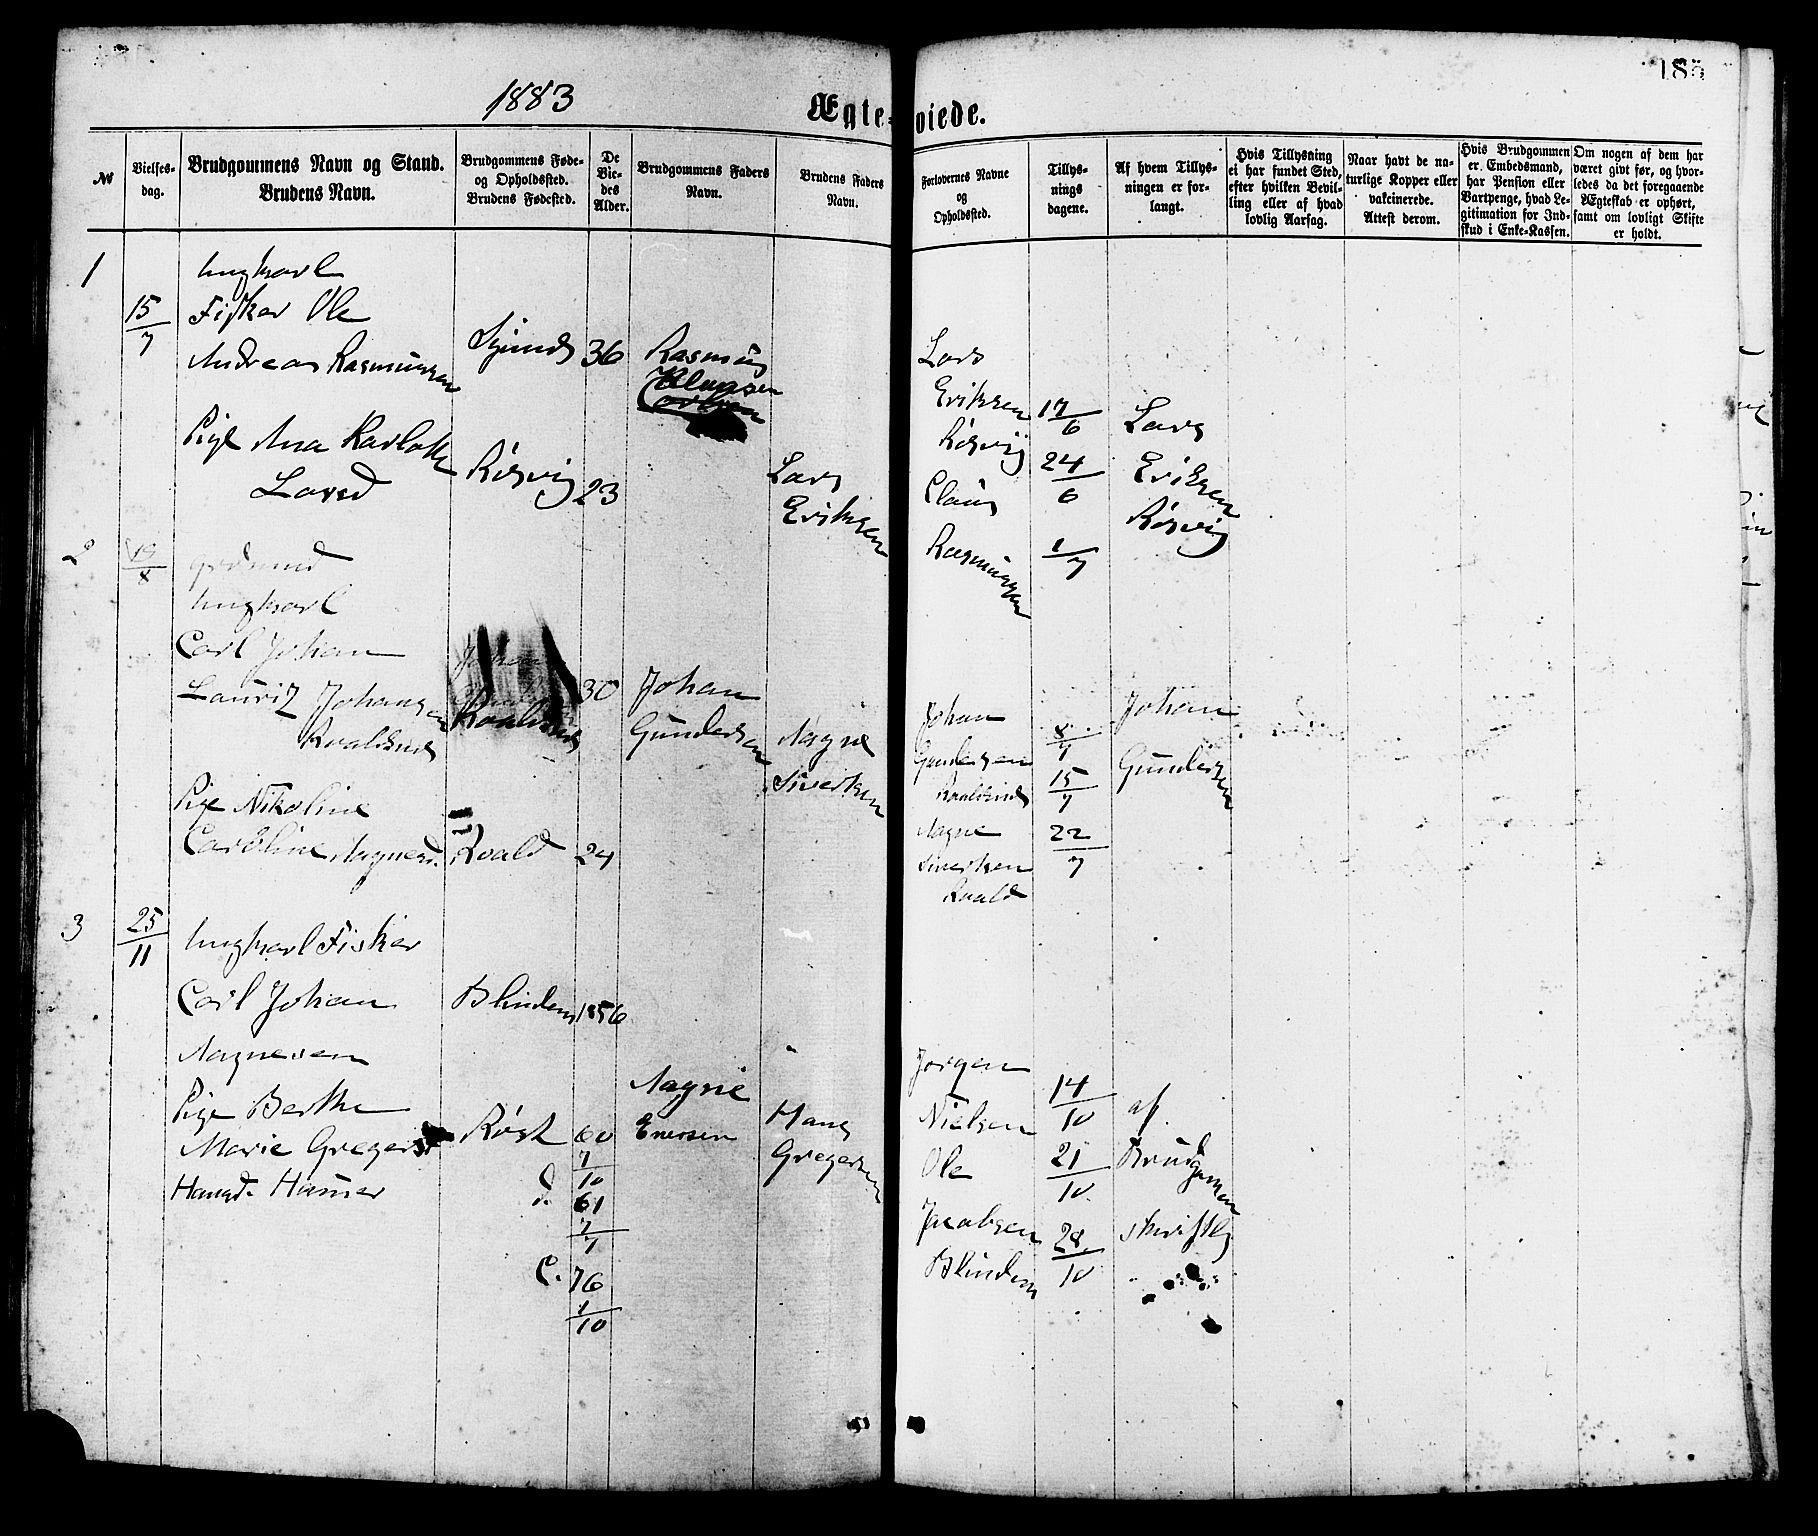 185
1883
Ægte-viede.
№
Vielses-
dag.
Brudgommens Navn og Stand.
Brudens Navn.
Brudgommens Føde-
og Opholdssted.
Brudens Fødested.
De
Vie-
des
Alder.
Brudgommens Faders
Navn.
Brudens Faders
Navn.
Forlovernes Navne
og
Opholdssted.
Tillys-
nings
dagene.
Af hvem Tillys-
ningen er for-
langt.
Hvis Tillysning
ei har fundet Sted,
efter hvilken Bevil-
ling eller af hvad
lovlig Aarsag.
Naar havt de na-
turlige Kopper eller
vakcinerede.
Attest derom.
Hvis Brudgommen
er Embedsmand,
har Pension eller
Vartpenge, hvad Le-
gitimation for Ind-
skud i Enke-Kassen.
Om nogen af dem har
været givt før, og hvor-
ledes da det foregaaende
Ægteskab er ophørt,
samt om lovligt Skifte
er holdt.
1
15/7
Ungkarl
Fisker Ole
Andreas Rasmussen
36
Rasmus
Pige Ana Karlotte
Larsd
Røsvig
23
Lars
Eriksen
Lars
Eriksen
Røsvig
Claus
Rasmussen
17/6
24/6
1/7
Lars
Eriksen
Røsvig
2
19/8
Ungkarl
Carl Johan
Lauriz Johansen
Roaldsnes
Roaldsnes
30
Johan
Gundersen
Aagne
Siverksen
Pige Nikoline
Caroline Aagnesd.
Roald
24
Johan
Gundersen
Roaldsnes
Aagne
Siverksen
Roald
8/7
15/7
22/7
Johan
Gundersen
3
25/11
Ungkarl Fisker
Carl Johan
Aagnesen
Blindem
1856
Aagne
Eversen
Pige Berthe
Marie Gregers
Hansd. Hamer
Røst
60
7/10
d. 61
7/7
C. 76
1/10
Hans
Gregersen
Jørgen
Nielsen
Ole
Jacobsen
Blindem
14/10
21/10
28/10
af
Brudgomen
skriftlig